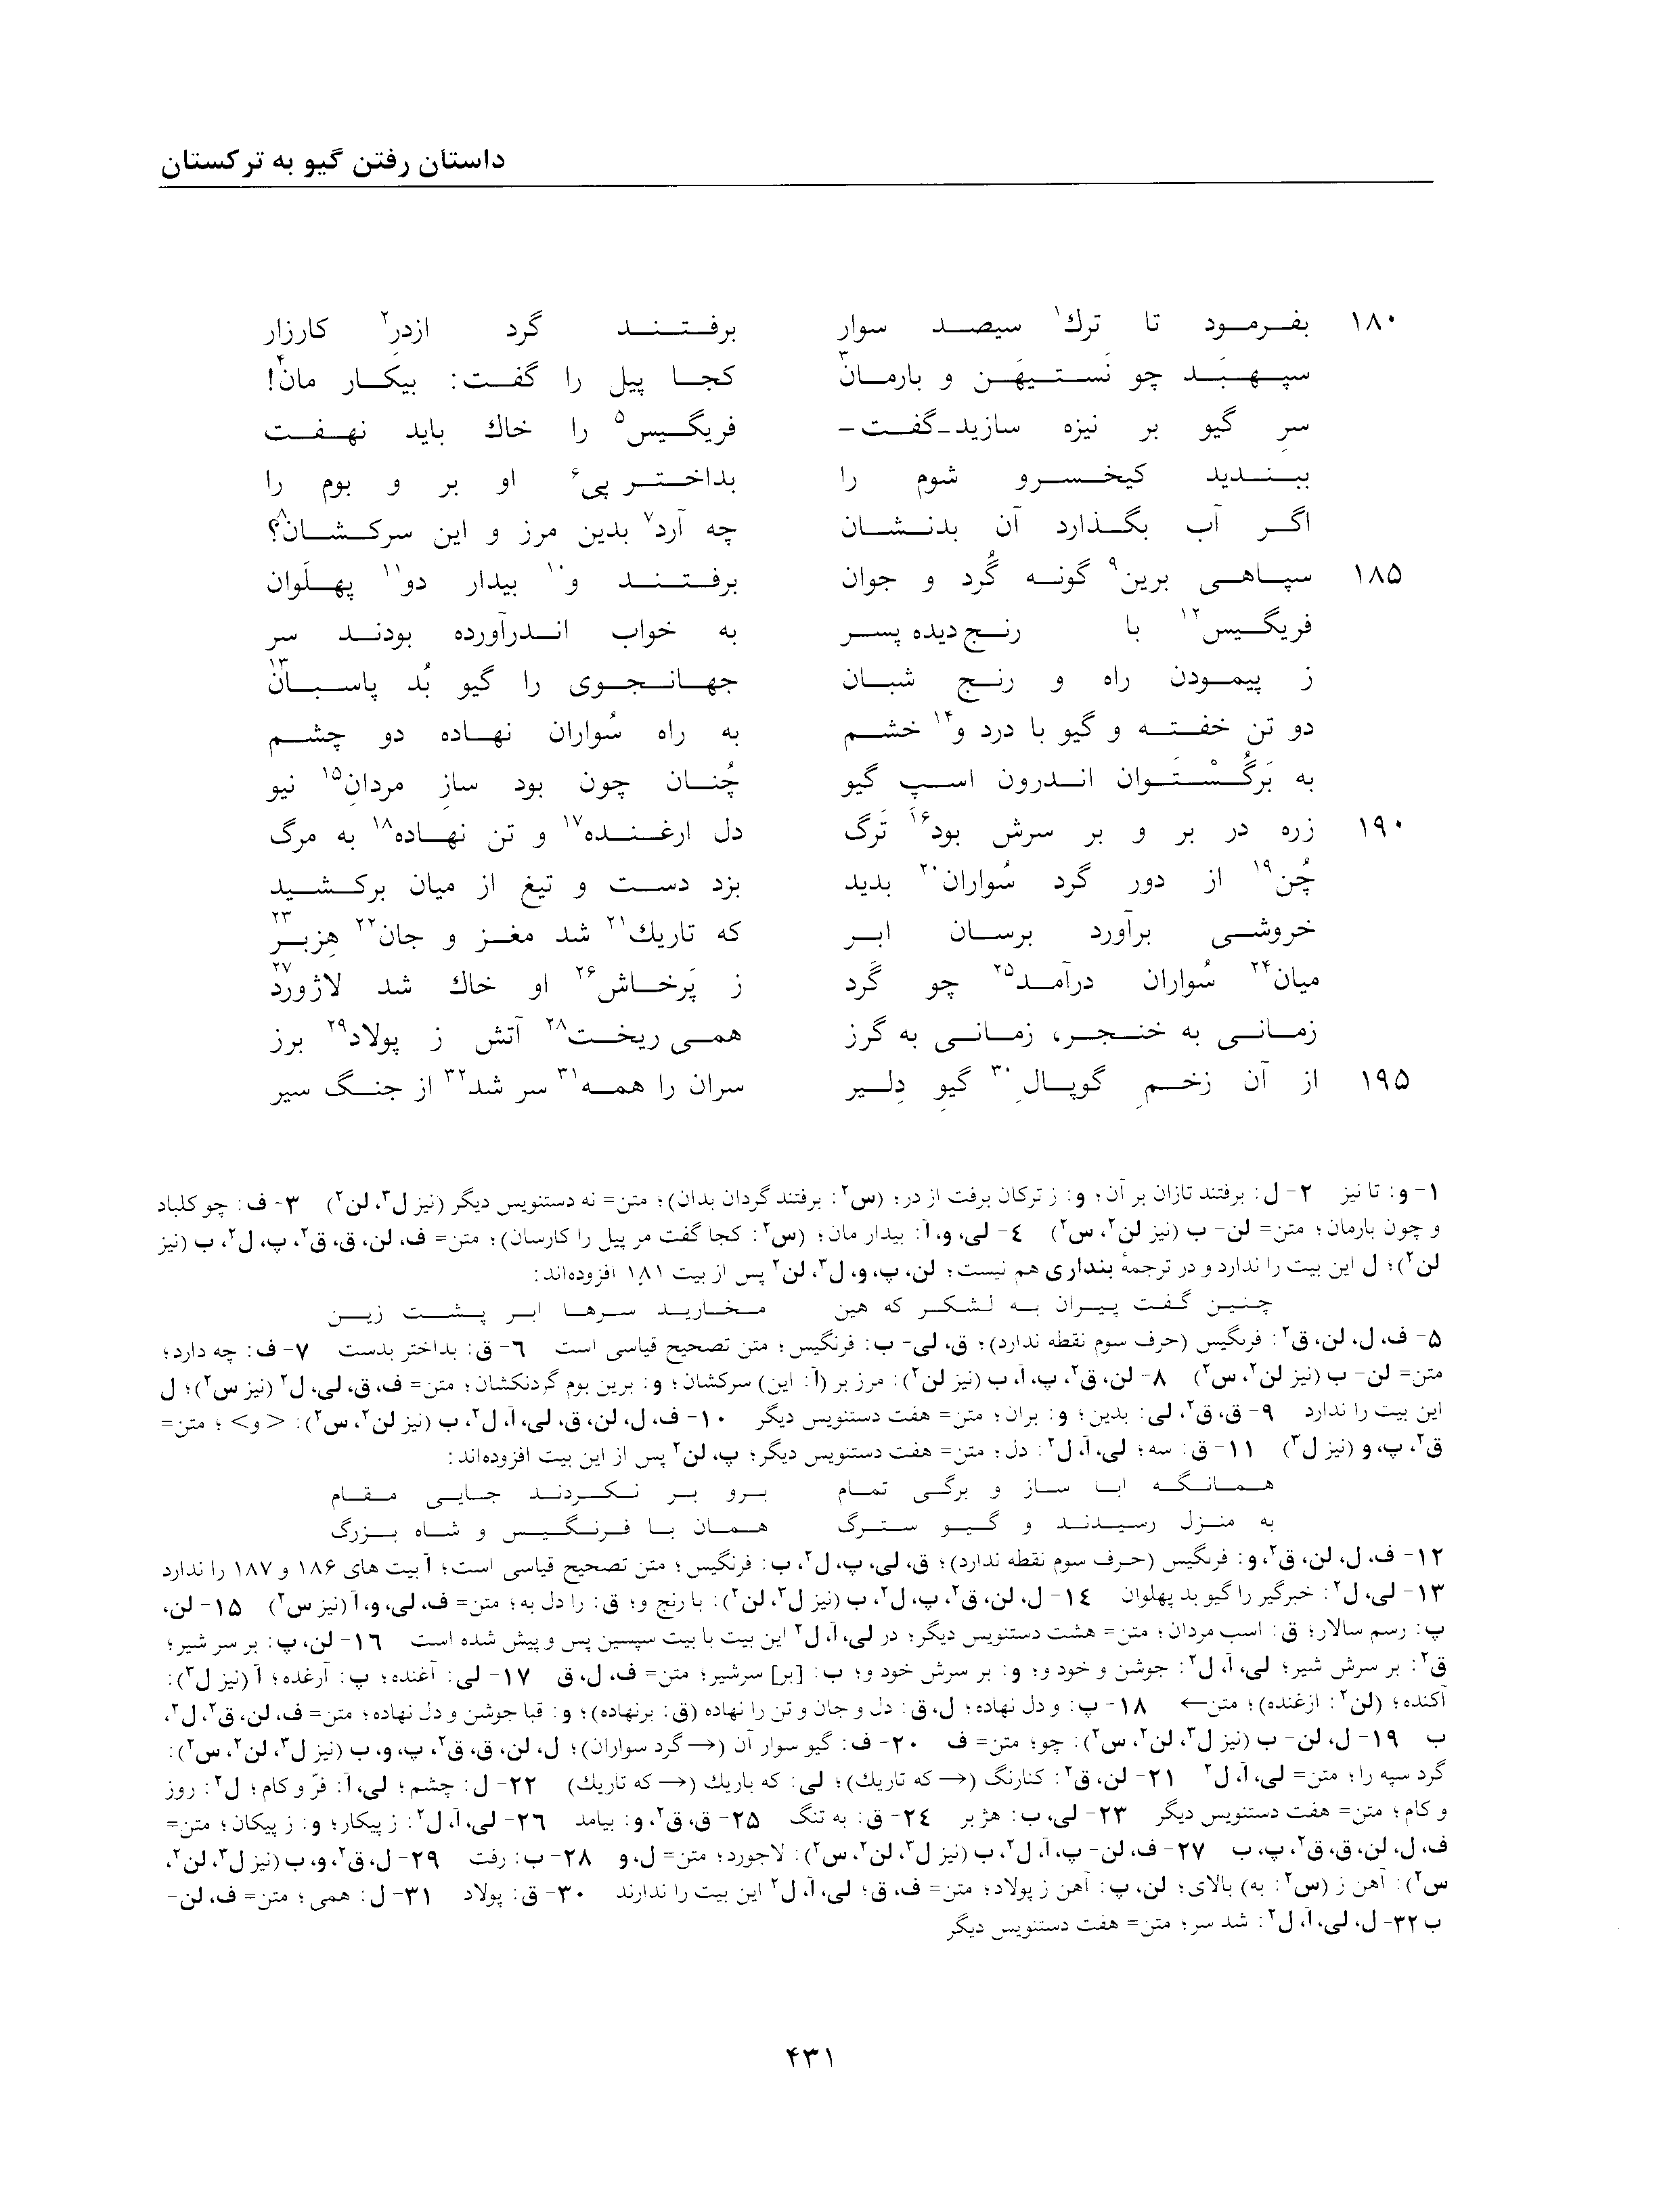 داستان رفتن گیو به ترکستان
۱۸۰ بفرمود تا ترك۱ سیصد سوار برفتند گرد ازدر۲ کارزار
سپهبَد چو نَستیهَن و بارمان۳ کجا پیل را گفت: بیکار مان۴!
سرِ گیو بر نیزه سازید_گفت_ فریگیس۵ را خاك باید نهفت
ببندید کیخسرو شوم را بداختر پی۶ او بر و بوم را
اگر آب بگذارد آن بدنشان چه آرد۷ بدین مرز و این سرکشان۸؟
۱۸۵ سپاهی برین۹ گونه گُرد و جوان برفتند و۱۰ بیدار دو۱۱ پهلَوان
فریگیس۱۲ با رنج‌دیده پسر به خواب اندرآورده بودند سر
ز پیمودن راه و رنج شبان جهانجوی را گیو بُد پاسبان۱۳
دو تن خفته و گیو با درد و۱۴ خشم به راه سُواران نهاده دو چشم
به بَرگُسْتَوان اندرون اسپ گیو چُنان چون بود سازِ مردانِ۱۵ نیو
۱۹۰ زره در بر و بر سرش بود۱۶ تَرگ دل ارغنده۱۷ و تن نهاده۱۸ به مرگ
چُن۱۹ از دور گرد سُواران۲۰ بدید بزد دست و تیغ از میان برکشید
خروشی برآورد برسان ابر که تاریك۲۱ شد مغز و جان۲۲ هِزبر۲۳
میان۲۴ سُواران درآمد۲۵ چو گَرد ز پَرخاش۲۶ او خاك شد لاژورد۲۷
زمانی به خنجر، زمانی به گرز همی ریخت۲۸ آتش ز پولاد۲۹ برز
۱۹۵ از آن زخمِ گوپالِ۳۰ گیوِ دِلیر سران را همه۳۱ سر شد۳۲ از جنگ سیر
۱- و: تا نیز ۲- ل: برفتند تازان بر آن؛ و: ز ترکان برفت از در؛ (س۲: برفتند گردان بدان)؛ متن= نه دستنویس دیگر (نیز ل۳، لن۲) ۳- ف: چو کلباد
و چون بارمان؛ متن= لن- ب (نیز لن۲، س۲) ٤- لی، و، آ: بیدار مان؛ (س۲: کجا گفت مر پیل را کارسان)؛ متن= ف، لن، ق، ق۲، پ، ل۲، ب (نیز
لن۲)؛ ل این بیت را ندارد و در ترجمهٔ بنداری هم نیست؛ لن، پ، و، ل۳، لن۲ پس از بیت ۱۸۱ افزوده‌اند:
چنین گفت پیران به لشکر که هین مخارید سرها ابر پشت زین
۵- ف، ل، لن، ق۲: فرىگیس (حرف سوم نقطه ندارد)؛ ق، لی- ب: فرنگیس؛ متن تصحیح قیاسی است ٦- ق: بداختر بدست ۷- ف: چه دارد؛
متن= لن- ب (نیز لن۲، س۲) ۸- لن، ق۲، پ، آ، ب (نیز لن۲): مرز بر (آ: این) سرکشان؛ و: برین بوم گردنکشان؛ متن= ف، ق، لی، ل۲ (نیز س۲)؛ ل
این بیت را ندارد ۹- ق، ق۲، لی: بدین؛ و: بران؛ متن= هفت دستنویس دیگر ۱۰- ف، ل، لن، ق، لی، آ، ل۲، ب (نیز لن۲، س۲): <و>؛ متن=
ق۲، پ، و (نیز ل۳) ۱۱- ق: سه؛ لی، آ، ل۲: دل؛ متن= هفت دستنویس دیگر؛ پ، لن۲ پس از این بیت افزوده‌اند:
همانگه ابا ساز و برگی تمام برو بر نکردند جایی مقام
به منزل رسیدند و گیو سترگ همان با فرنگیس و شاه بزرگ
۱۲- ف، ل، لن، ق۲، و: فرىگیس (حرف سوم نقطه ندارد)؛ ق، لی، پ، ل۲، ب: فرنگیس؛ متن تصحیح قیاسی است؛ آ بیت های ۱۸۶ و ۱۸۷ را ندارد
۱۳- لی، ل۲: خبرگیر را گیو بد پهلوان ۱٤- ل، لن، ق۲، پ، ل۲، ب (نیز ل۳، لن۲): با رنج و؛ ق: را دل به؛ متن= ف، لی، و، آ (نیز س۲) ۱۵- لن،
پ: رسم سالار؛ ق: اسب مردان؛ متن= هشت دستنویس دیگر؛ در لی، آ، ل۲ این بیت با بیت سپسین پس و پیش شده است ۱٦- لن، پ: بر سر شیر؛
ق۲: بر سرش شیر؛ لی، آ، ل۲: جوشن و خود و؛ و: بر سرش خود و؛ ب: [بر] سرشیر؛ متن= ف، ل، ق ۱۷- لی: آغنده؛ پ: آرغده؛ آ (نیز ل۳):
آکنده؛ (لن۲: ازغنده)؛ متن← ۱۸- پ: و دل نهاده؛ ل، ق: دل و جان و تن را نهاده (ق: برنهاده)؛ و: قبا جوشن و دل نهاده؛ متن= ف، لن، ق۲، ل۲،
ب ۱۹- ل، لن- ب (نیز ل۳، لن۲، س۲): چو؛ متن= ف ۲۰- ف: گیو سوار آن (→ گرد سواران)؛ ل، لن، ق، ق۲، پ، و، ب (نیز ل۳، لن۲، س۲):
گرد سپه را؛ متن= لی، آ، ل۲ ۲۱- لن، ق۲: کنارنگ (→ که تاریك)؛ لی: که باریك (→ که تاریك) ۲۲- ل: چشم؛ لی، آ: فرّ و کام؛ ل۲: روز
و کام؛ متن= هفت دستنویس دیگر ۲۳- لی، ب: هژبر ۲٤- ق: به تنگ ۲۵- ق، ق۲، و: بیامد ۲٦- لی، آ، ل۲: ز پیکار؛ و: ز پیکان؛ متن=
ف، ل، لن، ق، ق۲، پ، ب ۲۷- ف، لن- پ، آ، ل۲، ب (نیز ل۳، لن۲، س۲): لاجورد؛ متن= ل، و ۲۸- ب: رفت ۲۹- ل، ق۲، و، ب (نیز ل۳، لن۲،
س۲): آهن ز (س۲: به) بالای؛ لن، پ: آهن ز پولاد؛ متن= ف، ق؛ لی، آ، ل۲ این بیت را ندارند ۳۰- ق: پولاد ۳۱- ل: همی؛ متن= ف، لن-
ب ۳۲- ل، لی، آ، ل۲: شد سر؛ متن= هفت دستنویس دیگر
۴۳۱